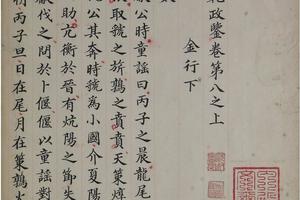 範政鑒卷第八之上
金行下
公時童謠曰丙子之晨龍尾
取虢之旂鶉之賁賁天策焞
公其奔時虢爲小國介夏陽
助亢衡于晉有炕陽之節失
獻伐之問於卜偃偃以童謠對
朔丙子旦日在尾月在策鶉火